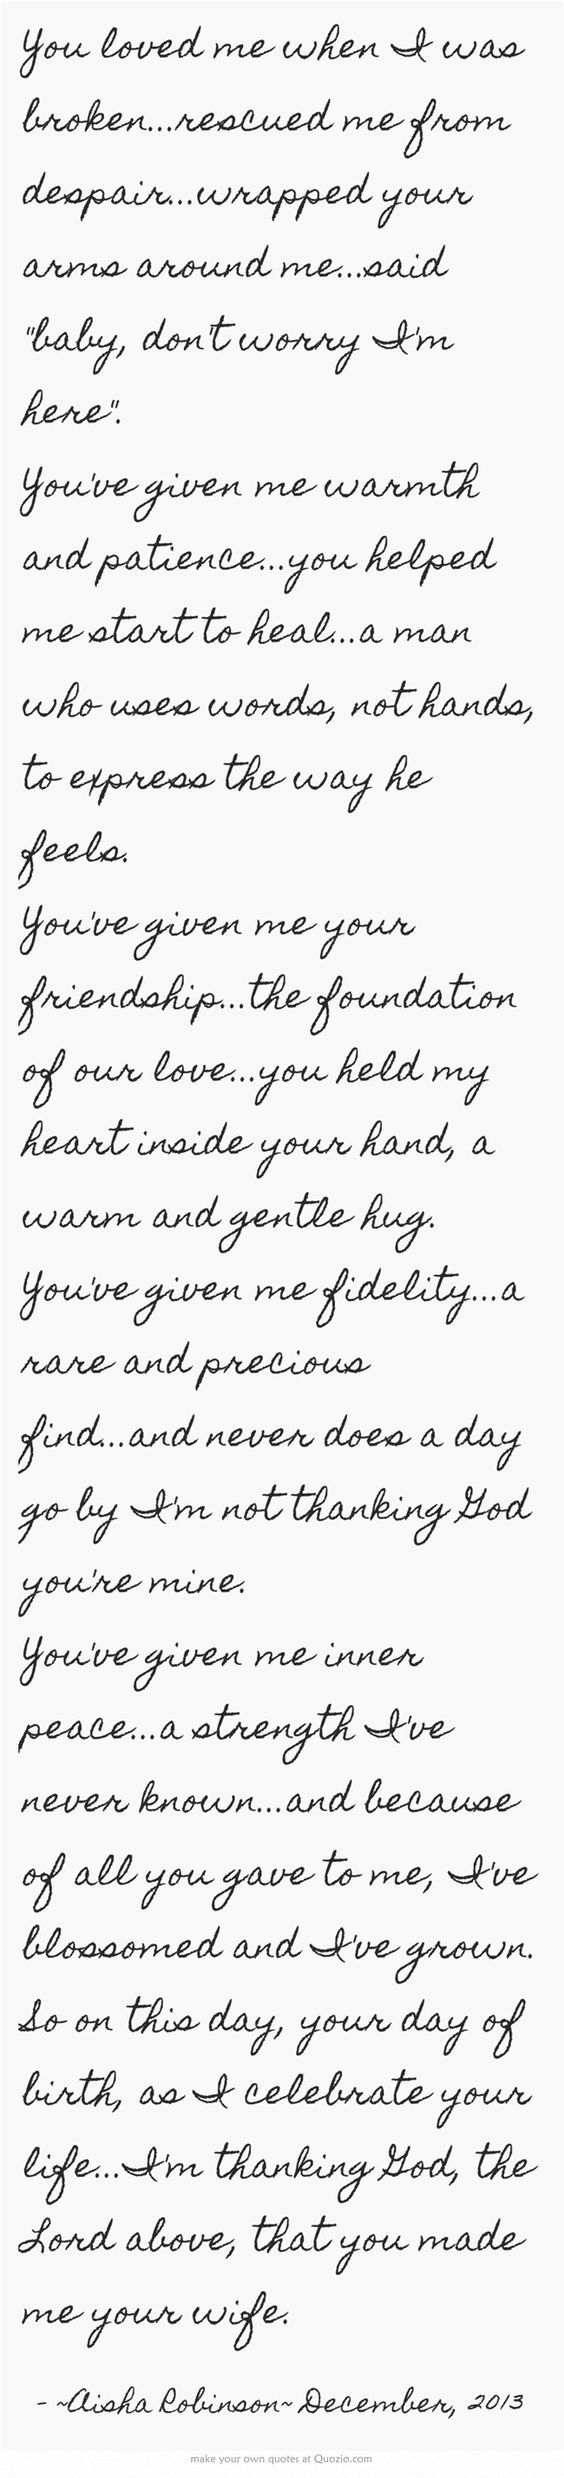 You loved me when I was
broken...rescued me from
despair...wrapped your
arms around me...said
"baby, don't worry I'm
here".
You've given me warmth
and patience...you helped
me start to heal...a man
who uses words, not hands,
to express the way he
feels.
You've given me your
friendship...the foundation
of our love...you held my
heart inside your hand, a
warm and gentle hug.
You've given me fidelity...a
rare and precious
find...and never does a day
go by I'm not thanking God
you're mine.
You've given me inner
peace...a strength I've
never known...and because
of all you gave to me, I've
blossomed and I've grown.
So on this day, your day of
birth, as I celebrate your
life...I'm thanking God, the
Lord above, that you made
me your wife.
- ~Aisha Robinson~ December, 2013
make your own quotes at Quozio.com